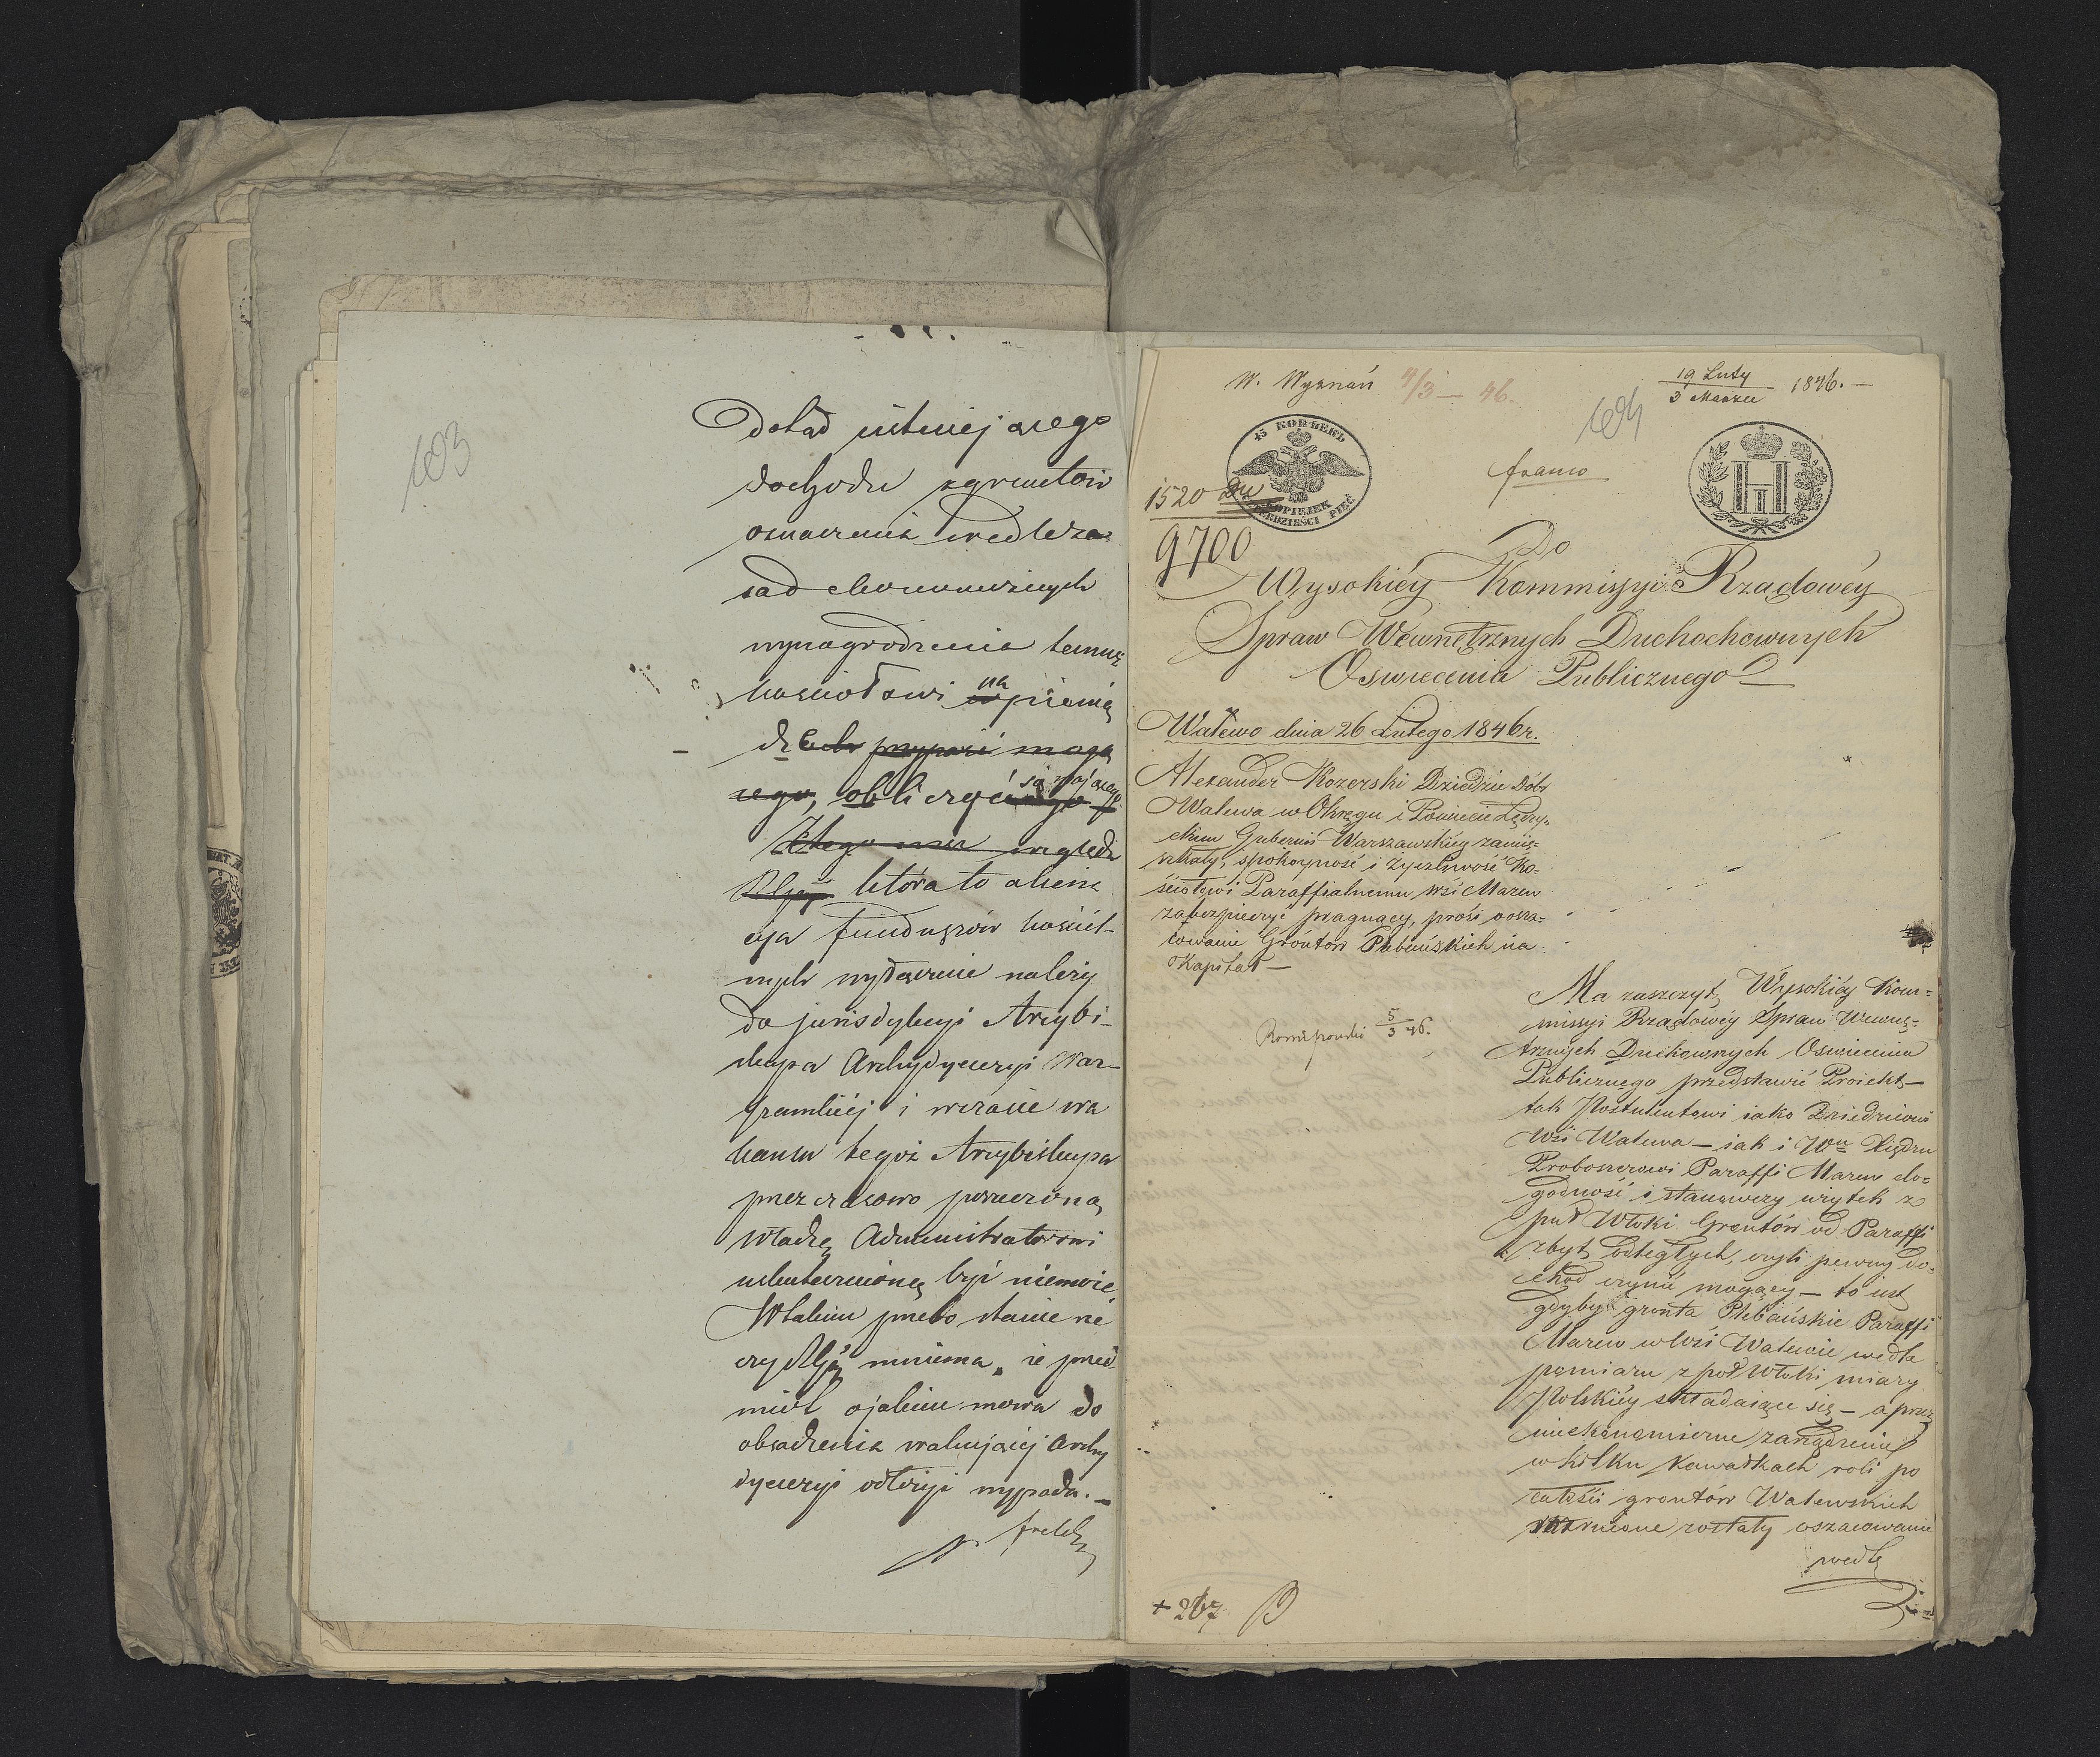 103
Dotąd istniejącego
dochodu z gruntów
oznaczenia wedle za-
sad ekonomicznych
wynagrodzenia temuż
kościołowi na pienią
dze przynosić mogą
cego, obliczyć się mającego
względu
która to aliena
cya funduszów kościel-
nych wyłącznie należy
do jurisdykcyi Arcybi-
skupa Archydyecezyi War-
szawskiéj i w czasie wa
kansu tegoż Arcybiskupa
przez czasowo poruczoną
władzę Administratorowi
uskutecznioną być niemoże
W takim przeto stanie rze
czy mniema, że przed-
miot o jakim mowa do
obsadzenia wakującéj Archy
dyecezyi odłożyć wypada. –
W. Wyznań 4/3 – 46.
19 Luty
3 Marzec 1846. –
104
45 КОПѢЕКЪ
KOPIEJEK
CZTERDZIEŚCI PIĘĆ
franco
1520
9700
Do
Wysokiéy Kommissyi Rządowéy
Spraw Wewnętrznych Duchochownych
Oswiecenia Publicznego
Walewo dnia 26 Lutego 1846 r.
Alexander Kozerski Dziedzic Dóbr
Walewa w Okręgu i Powiecie Łęczy-
ckim Gubernii Warszawskiéy zamie-
szkały, spokoyność i życzliwość Ko-
ściołowi Paraffialnemu wsi Mazew
zabezpieczyć pragnący, prosi o osza-
cowanie Gróntów Plebańskich na
Kapitał –
5
3 46.
Ma zaszczyt, Wysokiéy Kom-
missyi Rządowéy Spraw Wewnę-
trznych Duchownych Oswiecenia
Publicznego przedstawić Proiekt –
tak Postulentowi iako Dziedzicowi
Wsi Walewa – iak i Wu Xiędzu
Proboszczowi Paraffi Mazew do-
godność i stanowczy użytek z
puł Włoki Grontów od Paraffi
zbyt odległych, czyli pewny do-
chód czynić mogący – to iest
gdyby gronta Plebańskie Paraffi
Mazew w Wsi Walewie wedle
pomiaru z poł Włoki miary
Polskiéy składaiące się – a przez
nieekonomiczne zarządzenie
w kilku kawałkach roli po
całości grontów Walewskich
zostały oszacowane
wedle
+ 267